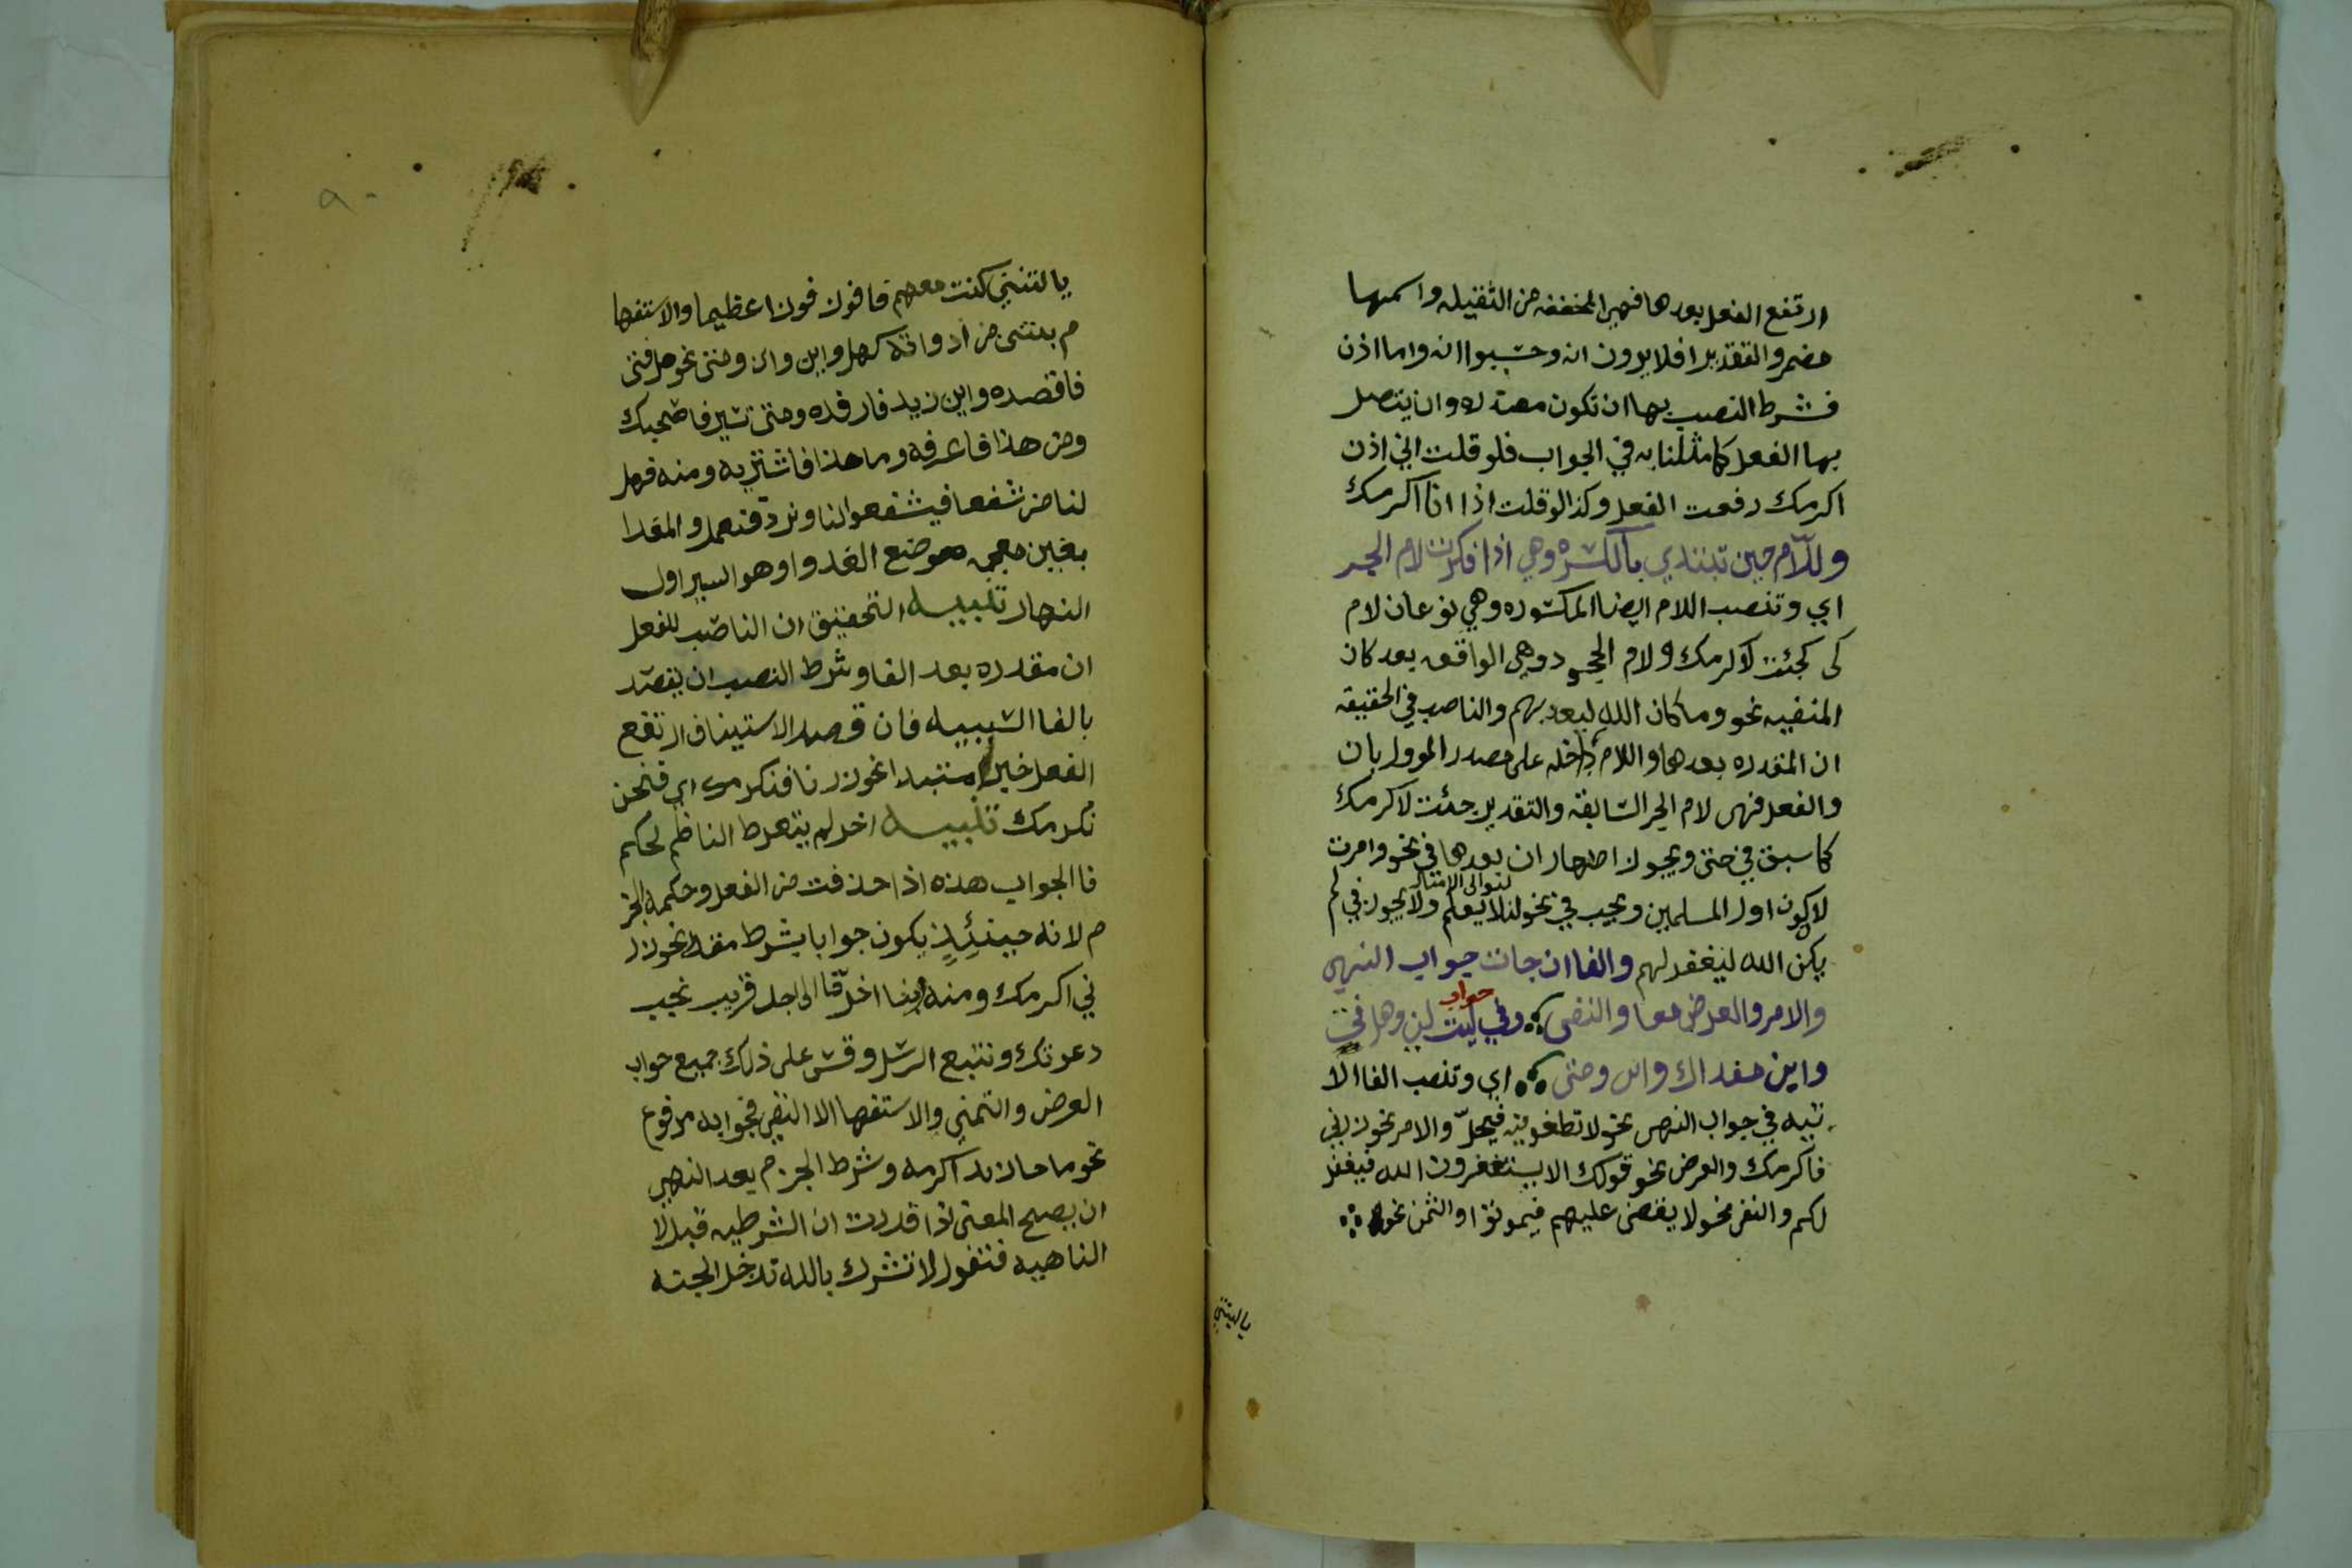 ارتفع الفعل بعدها فهي المخففه من الثقيله واسمها
مضمر والتقدير افلا يرون انه وحسبوا انه واما اذن
فشرط النصب بها ان تكون مصدره وان يتصل
بها الفعل كما مثلنا به في الجواب فلو قلت اني اذن
اكرمك رفعت الفعل وكذا لو قلت اذا انا اكرمك
واللام حين تبتدي بالكسره وهي اذا فكرت لام الجر
اي وتنصب اللام ايضا المكسوره وهي نوعان لام
كي كجئت لاكرمك ولام الجحود وهي الواقعه بعد كان
المنفيه نحو وما كان الله ليعذبهم والناصب في الحقيقه
ان المقدره بعدهما واللام داخله على مصدر الموول بان
والفعل فهي لام الجر السابقه والتقدير جئت لاكرمك
كما سبق في حتى ويجوز اظهار ان بعدها في نحو وامرت
لتوالي الامثال
لاكون اول المسلمين ويجب في نحو لئلا يعلم ولا يجوز في لم
يكن الله ليغفر لهم والفا ان جات جواب النهي
والامر والعرض معا والنفي وفي جواب ليت لي وهل فتى
واين مغداك واني ومتى اي وتنصب الفا الا
تيه في جواب النهي نحو لا تطغوا فيه فيحل والامر نحو زرني
فاكرمك والعرض نحو قولك الا تستغفرون الله فيغفر
لكم والنفي نحو لا يقضى عليهم فيموتوا والتمن نحو
يا ليتني
يا ليتني كنت معهم فافوز فوزا عظيما والاستفها
م بشي من ادواته كهل واين واني ومتى نحو هل فتى
فاقصده واين زيد فارفده ومتى تسير فاصحبك
ومن هذا فاعرفه وما هذا فاشتريه ومنه فهل
لنا من شفعا فيشفعوا لنا ونرد فنعمل والمغدا
بغين معجمه موضع الغدو وهو السير اول
النهار تنبيه التحقيق ان الناصب للفعل
ان مقدره بعد الفا وشرط النصب ان يقصد
بالفا السببيه فان قصد الاستيناف ارتفع
الفعل خبرا لمبتدا نحو زرنا فنكرمك اي فنحن
نكرمك تنبيه اخر لم يتعرض الناظم لحكم
فا الجواب هذه اذا حذفت من الفعل وحكمه الجز
م لانه حينئذ يكون جوابا بشرط مقدر نحو زر
ني اكرمك ومنه ربنا اخرنا الى اجل قريب نجب
دعوتك ونتبع الرسل وقس على ذلك جميع جواب
العرض والتمني والاستفها الا النفي فجوابه مرفوع
نحو ما جا زيد اكرمه وشرط الجزم بعد النهي
ان يصح المعنى اذا قدرت ان الشرطيه قبل لا
الناهيه فتقول لا تشرك بالله تدخل الجنه